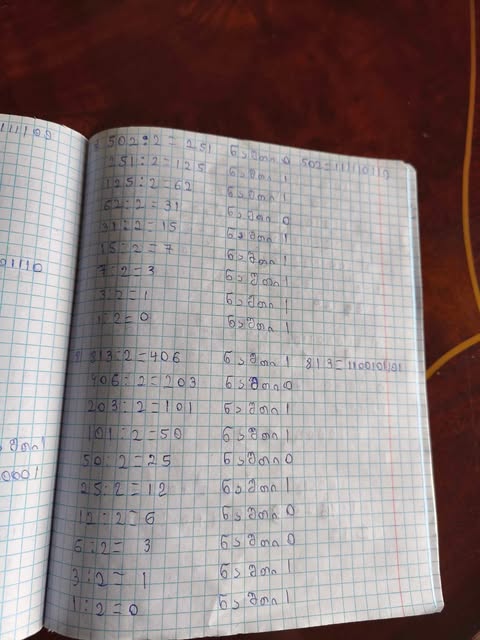 502:2=251 ნაშთი 0 502=111110110
251:2=125 ნაშთი 1
125:2=62 ნაშთი 1
62:2=31 ნაშთი 0
31:2=15 ნაშთი 1
15:2=7 ნაშთი 1
7:2=3 ნაშთი 1
3:2=1 ნაშთი 1
1:2=0 ნაშთი 1
813:2=406 ნაშთი 1 813=1100101101
406:2=203 ნაშთი 0
203:2=101 ნაშთი 1
101:2=50 ნაშთი 1
50:2=25 ნაშთი 0
25:2=12 ნაშთი 1
12:2=6 ნაშთი 0
6:2=3 ნაშთი 0
3:2=1 ნაშთი 1
1:2=0 ნაშთი 1